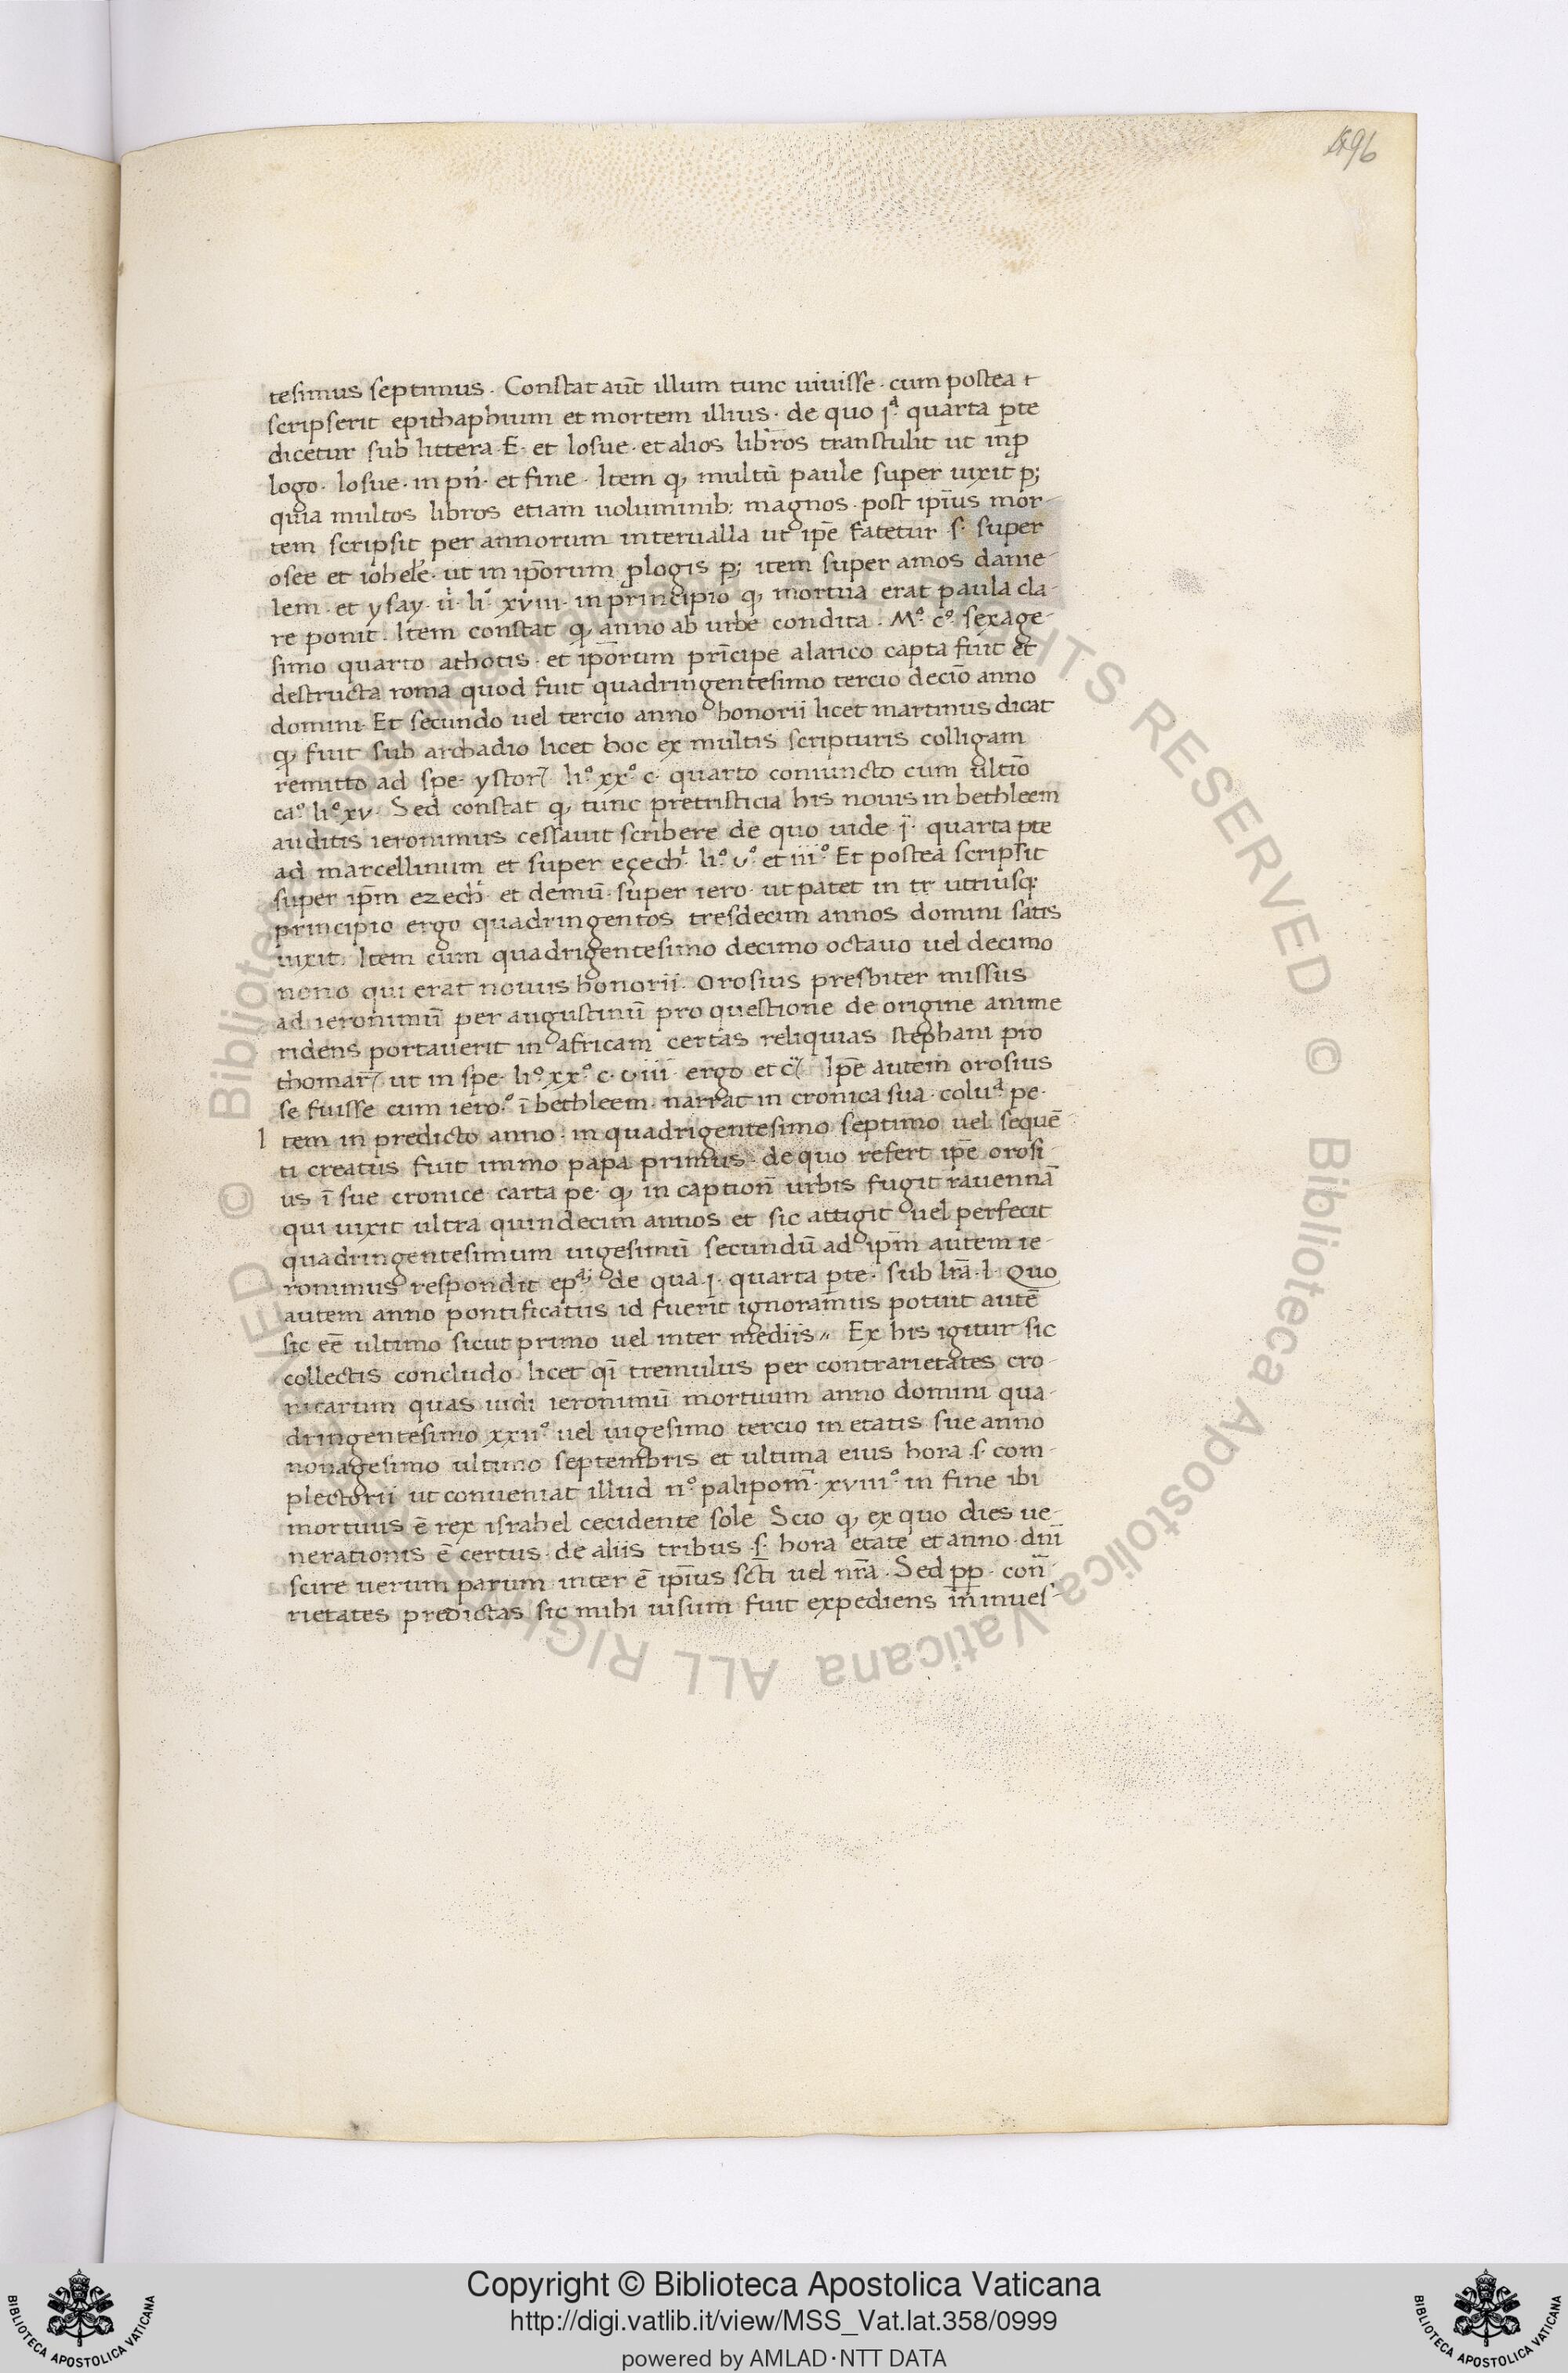 496
tesimus septimus. Constat aut̄ illum tunc uiuisse. cum postea
scripserit epithaphium et mortem illius. de quo jª quarta p̱te
dicetur sub littera .E. et Iosue. et alios libros transtulit ut in p̱
logo. Iosue. in pñ. et fine. Item q, multū paule super uixit p;
quia multos libros etiam uoluminib: magnos. post ip̄ius mor-
tem scripsit per annorum interualla ut ip̄e fatetur s. super
osee et iohele. ut in ip̄orum p̱logis p; item super amos danie-
lem. et ysay. li° xviii. in principio q, mortua erat paula cla-
re ponit. Item constat q, anno ab urbe condita. M° c° sexage-
simo quarto athotis. et ip̄orum prīcipe alarico capta fuit et
destructa roma quod fuit quadringentesimo tercio decīo anno
domini. Et secundo uel tercio anno honorii licet martinus dicat
q, fuit sub archadio licet hoc ex multis scripturis colligam
remitto ad spe. ystor. li° xx° c. quarto coniuncto cum ultīo
ca° li° xv. Sed constat q, tunc pretristicia his nouis in bethleem
auditis ieronimus cessauit scribere de quo uide j. quarta p̱te
ad marcellinum et super eçech. li° v° et iii° Et postea scripsit
super ip̄m ezech. et demū. super iero. ut patet in tr utriusq:
principio ergo quadringentos tresdecim annos domini satis
uixit. Item cum quadrigentesimo decimo octauo uel decimo
nono qui erat nouus honorii. Orosius presbiter missus
ad ieronimū per augustinū pro questione de origine anime
ridens portauerit in africam certas reliquias stephani pro
thomar. ut in spe. li° xx° c. viii. ergo et c. Ip̄e autem orosius
se fuisse cum iero° ī bethleem. narrat in cronica sua. coluª pe.
I tem in predicto anno. in quadrigentesimo septimo uel sequē
ti creatus fuit immo papa primus. de quo refert ip̄e orosi-
us ī sue cronice carta pe. q, in captionē urbis fugit rauennā
qui uixit ultra quindecim annos et sic attigit uel perfecit
quadringentesimum uigesimū secundū ad ip̄m autem ie-
ronimus respondit ep de qua j. quarta p̱te. sub lr̄a .I. Quo
autem anno pontificatus id fuerit ignoramus potuit autē
sic eē ultimo sicut primo uel inter mediis„ Ex his igitur sic
collectis concludo licet qī tremulus per contrarietates cro-
nicarum quas uidi ieronimū mortuum anno domini qua-
dringentesimo xxii° uel uigesimo tercio in etatis sue anno
nonagesimo ultimo septembris et ultima eius hora .s. com-
plectorii ut conueniat illud ii° palipom̄. xviii° in fine ibi
mortuus ē rex israhel cecidente sole Scio q, ex quo dies ue-
nerationis ē certus. de aliis tribus .s. hora etate et anno. dnī
scire uerum parum inter ē ip̄ius sctī uel nr̄a. Sed p̱p̱. con̄
rietates predictas sic mihi uisum fuit expediens in inues-
© Biblioteca Apostolica Vaticana ALL RIGHTS RESERVED © Biblioteca Apostolica Vaticana ALL RIGHTS RESERVED
Copyright © Biblioteca Apostolica Vaticana
http://digi.vatlib.it/view/MSS_Vat.lat.358/0999
powered by AMLAD·NTT DATA
BIBLIOTECA APOSTOLICA VATICANA
BIBLIOTECA APOSTOLICA VATICANA